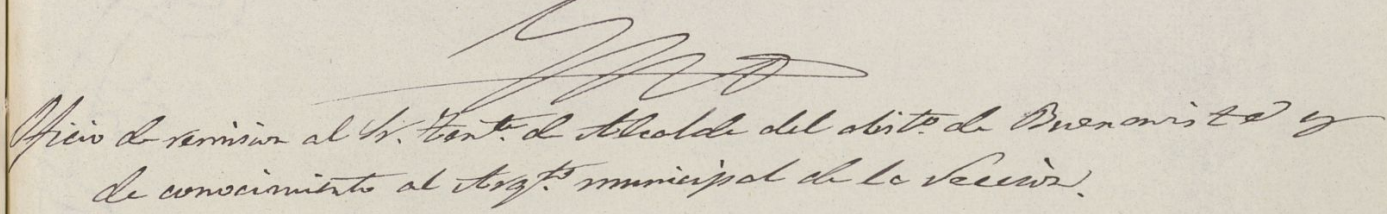 Oficio de remision al Sr. Tente. de Alcalde del distto. de Buenavista y
de conocimiento al Arqto. municipal de la Seccion.